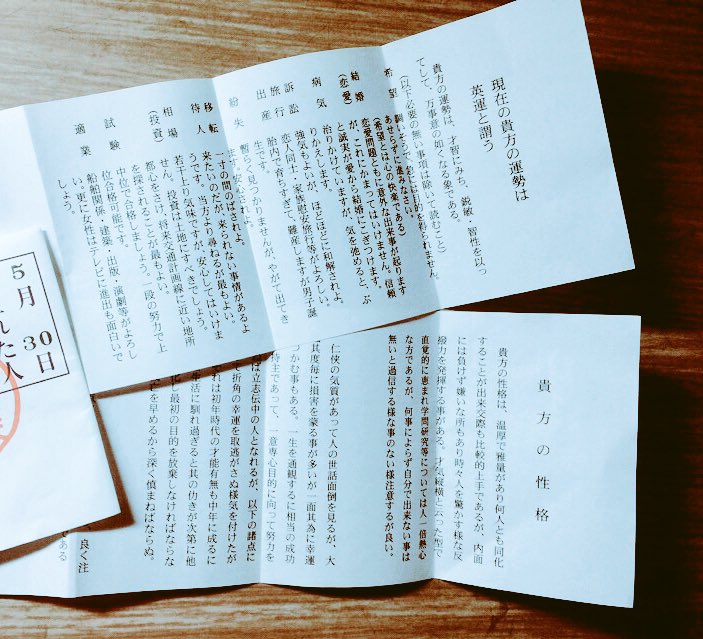 現在の貴方の運勢は
英運と謂う
貴方の運勢は、才智にみち、鋭敏、智性を以っ
てして、万事意の如くなる象である。
(以下必要の無い事項は除いて読むこと)
希望
目的を得られません。
あせらずに進みなさい。
(希望とは心の快楽である)
結婚
(恋愛)
恋愛問題ともに意外な出来事が起ります
が、これにかまってはいけません。信頼
と誠実が愛から結婚にこぎつけます。
病気
治りかけていますが、気を弛めると、ぶ
りかえします。
訴訟
強気もよいが、ほどほどに和解されよ。
旅行
恋人同士、家族慰安旅行等がよろしい。
出産
胎内で育ちすぎて、難産しますが男子誕
生です。
紛失
暫らく見つかりませんが、やがて出てき
移転
一寸の間のばされよ。
待人
来たいのだが、来られない事情があるよ
うです。当方より尋ねるが最もよい。
相場
(投資)
若干上り気味ですが、安心してはいけま
せん。投資は土地にすべきでしょう。
都心をさけ、将来交通計画線に近い地所
を探されることが最もよい。
試験
中位で合格しましょう。一段の努力で上
位合格可能です。
適業
船舶関係・建築・出版・演劇等がよろし
い。更に女性はテレビに進出も面白いで
しょう。
5月30日
れた人
貴方の性格
貴方の性格は、温厚で雅量があり何人とも同化
することが出来交際も比較的上手であるが、内面
には負けず嫌いな所もあり時々人を驚かす様な反
撥力を発揮する事がある。才気縦横と云った型で
直覚的に恵まれ学問研究等については人一倍熱心
な方であるが、何事によらず自分で出来ない事は
無いと過信する様な事のない様注意するが良い。
仁侠の気質があって人の世話面倒を見るが、大
其度毎に損害を蒙る事が多いが一面其為に幸運
つかむ事もある。一生を通観するに相当の成功
持主であって、一意専心目的に向って努力を
ば立志伝中の人となれるが、以下の諸点に
て折角の幸運を取逃がさぬ様気を付けたが
れは初年時代の才能有無も中年に成るに
生活に馴れ過ぎると其の仂きが次第に他
し最初の目的を放棄しなければならな
を早めるから深く慎まねばならぬ。
良く注
である